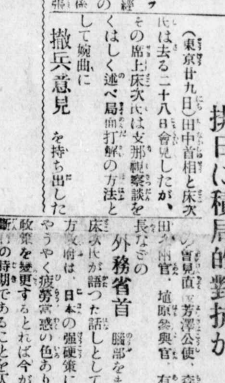 排日に積局的對抗か
（東京廿九日）田中首相と床次
氏は去る二十八日會見したが、
その席上床次氏は支那觀察談を
くはしく述べ局面打解の方法と
して婉曲に
撤兵意見 を持ち出した
の會見直
芳澤公使、森
田
兩官、植原參與官、有
長などの
外務省首 腦部をま
床次氏が語つた話しとして
方政府は、日本の強硬策に
やうやく疲勞當惑の色あり
政策を變更するとれば今が
の時期であることを